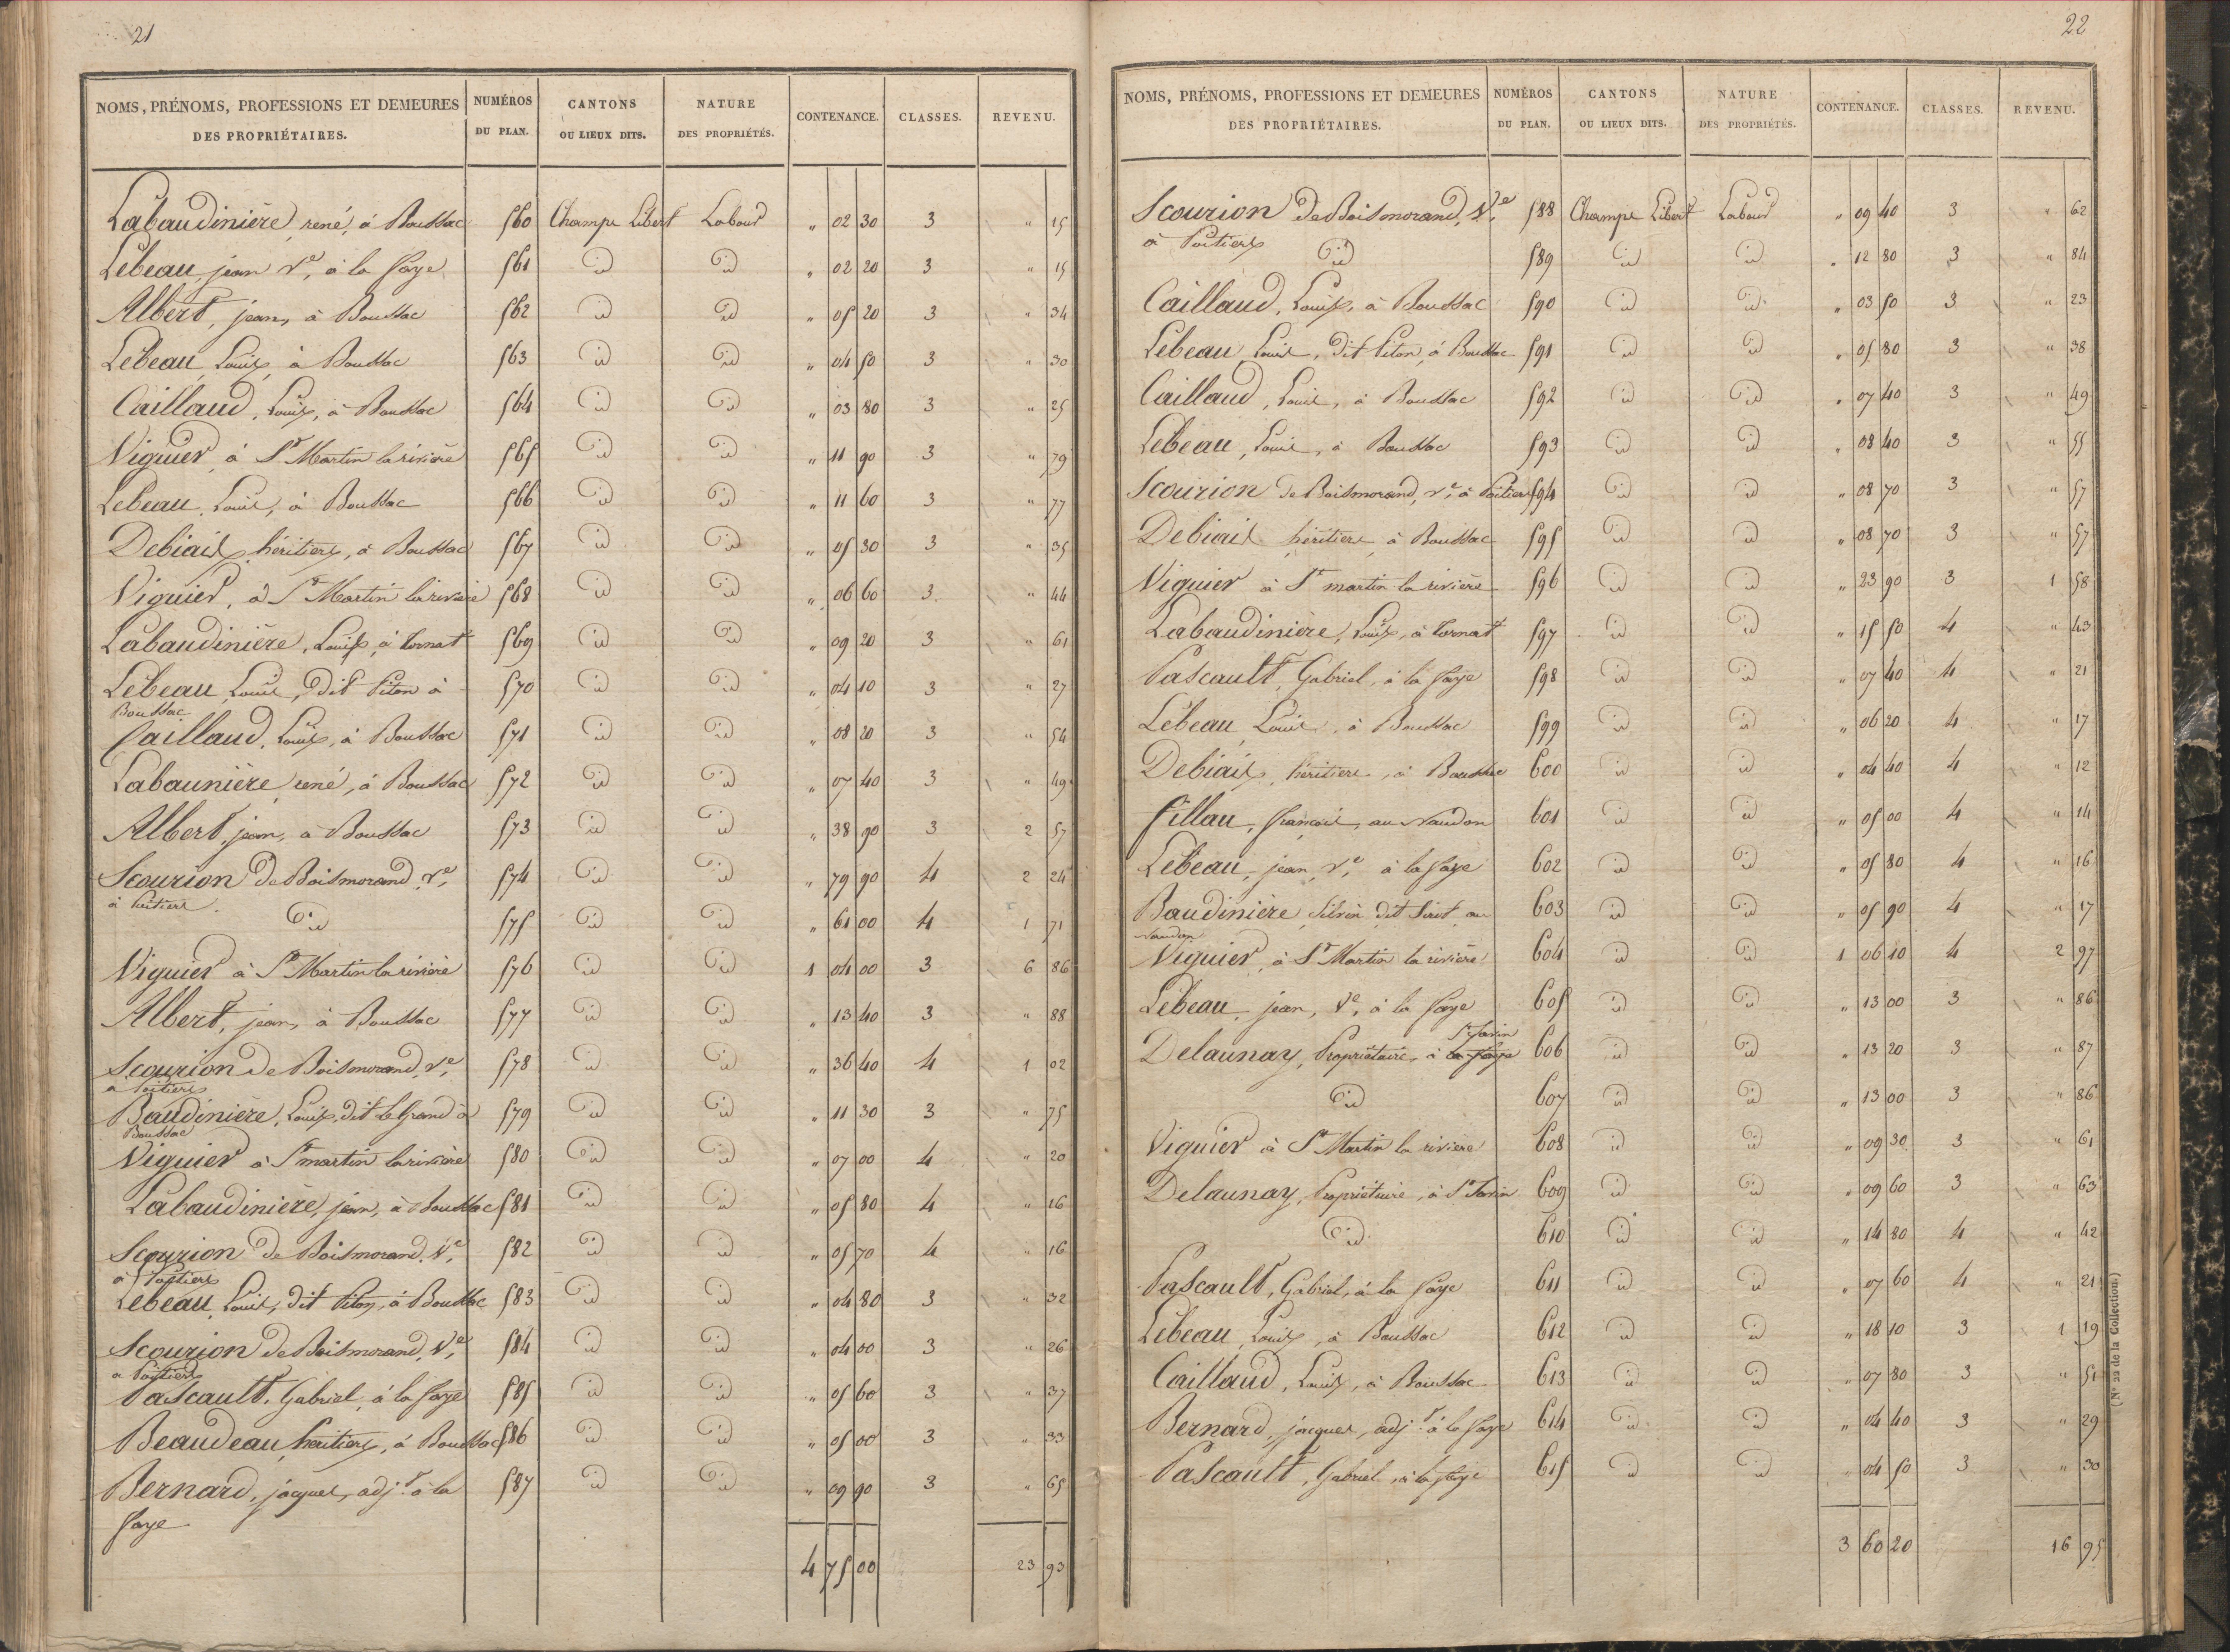 21
NOMS, PRÉNOMS, PROFESSIONS ET DEMEURES DES PROPRIÉTAIRES. NUMÉROS DU PLAN. CANTONS OU LIEUX DITS. NATURE DES PROPRIÉTÉS. CONTENANCE. CLASSES. REVENU.
Labaudinière, rené, à Boussac 560 Champs Libert Labour " 02 30 3 " 15
Lebeau jean Ve, à la faye 561 id id " 02 20 3 " 15
Albert, jean, à Boussac 562 id id " 05 20 3 " 34
Lebeau, Louis, à Boussac 563 id id " 04 50 3 " 30
Caillaud, Louis, à Boussac 564 id id " 03 80 3 " 25
Viguier à St Martin la rivière 565 id id " 11 90 3 " 79
Lebeau, Louis, à Boussac 566 id id " 11 60 3 " 77
Debiais, héritiers, à Boussac 567 id id " 05 30 3 " 35
Viguier, à St Martin la rivière 568 id id " 06 60 3 " 44
Labaudinière, Louis, à 569 id id " 09 20 3 " 61
Lebeau Louis, dit Piton à 570 id id " 04 10 3 " 27
Boussac
Caillaud, Louis, à Boussac 571 id id " 08 20 3 " 54
Labaunière, rené, à Boussac 572 id id " 07 40 3 " 49
Albert, jean, à Boussac 573 id id " 38 90 3 2 57
Scourion de Boismorand, Ve, 574 id id " 79 90 4 2 24
à Poitiers
id 575 id id " 61 00 4 1 71
Viguier à St Martin la rivière 576 id id 1 04 00 3 6 86
Albert, jean, à Boussac 577 id id " 13 40 3 " 88
Scourion de Boismorand, Ve, 578 id id " 36 40 4 1 02
à Poitiers
Baudinière, Louis, dit Le Grand à 579 id id " 11 30 3 " 75
Boussac
Viguier à St martin la rivière 580 id id " 07 00 4 " 20
Labaudinière, jean, à Boussac 581 id id " 05 80 4 " 16
Scourion de Boismorand, Ve, 582 id id " 05 70 4 " 16
à Poitiers
Lebeau Louis, dit Piton, à Boussac 583 id id " 04 80 3 " 32
Scourion de Boismorand, Ve, 584 id id " 04 00 3 " 26
à Poitiers
Pascault, Gabriel, à la faye 585 id id " 05 60 3 " 37
Beaudeau, héritiers, à Boussac 586 id id " 05 00 3 " 33
Bernard, jacques, adjt à la 587 id id " 09 90 3 " 65
faye
4 75 00 23 93
22
NOMS, PRÉNOMS, PROFESSIONS ET DEMEURES DES PROPRIÉTAIRES. NUMÉROS DU PLAN. CANTONS OU LIEUX DITS. NATURE DES PROPRIÉTÉS. CONTENANCE. CLASSES. REVENU.
Scourion de Boismorand, Ve, 588 Champs Libert Labour " 09 40 3 " 62
à Poitiers
id 589 id id " 12 80 3 " 84
Caillaud, Louis, à Boussac 590 id id " 03 50 3 " 23
Lebeau Louis, dit Piton, à Boussac 591 id id " 05 80 3 " 38
Caillaud, Louis, à Boussac 592 id id " 07 40 3 " 49
Lebeau, Louis, à Boussac 593 id id " 08 40 3 " 55
Scourion de Boismorand, Ve, à Poitiers 594 id id " 08 70 3 " 57
Debiais héritiers à Boussac 595 id id " 08 70 3 " 57
Viguier à St martin la rivière 596 id id " 23 90 3 1 58
Labaudinière, Louis, à 597 id id " 15 50 4 " 43
Pascault, Gabriel, à la faye 598 id id " 07 40 4 " 21
Lebeau Louis, à Boussac 599 id id " 06 20 4 " 17
Debiais, héritiers, à Boussac 600 id id " 04 40 4 " 12
fillau, francois, au Naudon 601 id id " 05 00 4 " 14
Lebeau, jean, Ve, à la faye 602 id id " 05 80 4 " 16
Baudinière Silvin dit au 603 id id " 05 90 4 " 17
Naudon
Viguier, à St Martin la rivière 604 id id 1 06 10 4 2 97
Lebeau jean, Ve, à la faye 605 id id " 13 00 3 " 86
Delaunay, Propriétaire, à la faye St Savin 606 id id " 13 20 3 " 87
id 607 id id " 13 00 3 " 86
Viguier à St Martin la rivière 608 id id " 09 30 3 " 61
Delaunay, Propriétaire, à St Savin 609 id id " 09 60 3 " 63
id 610 id id " 14 80 4 " 42
Pascault, Gabriel, à la faye 611 id id " 07 60 4 " 21
Lebeau Louis, à Boussac 612 id id " 18 10 3 1 19
Caillaud, Louis, à Boussac 613 id id " 07 80 3 " 51
Bernard, jacques, adjt à la faye 614 id id " 04 40 3 " 29
Pascault, Gabriel, à la faye 615 id id " 04 50 3 " 30
3 60 20 16 95
(N° 22 de la Collection.)